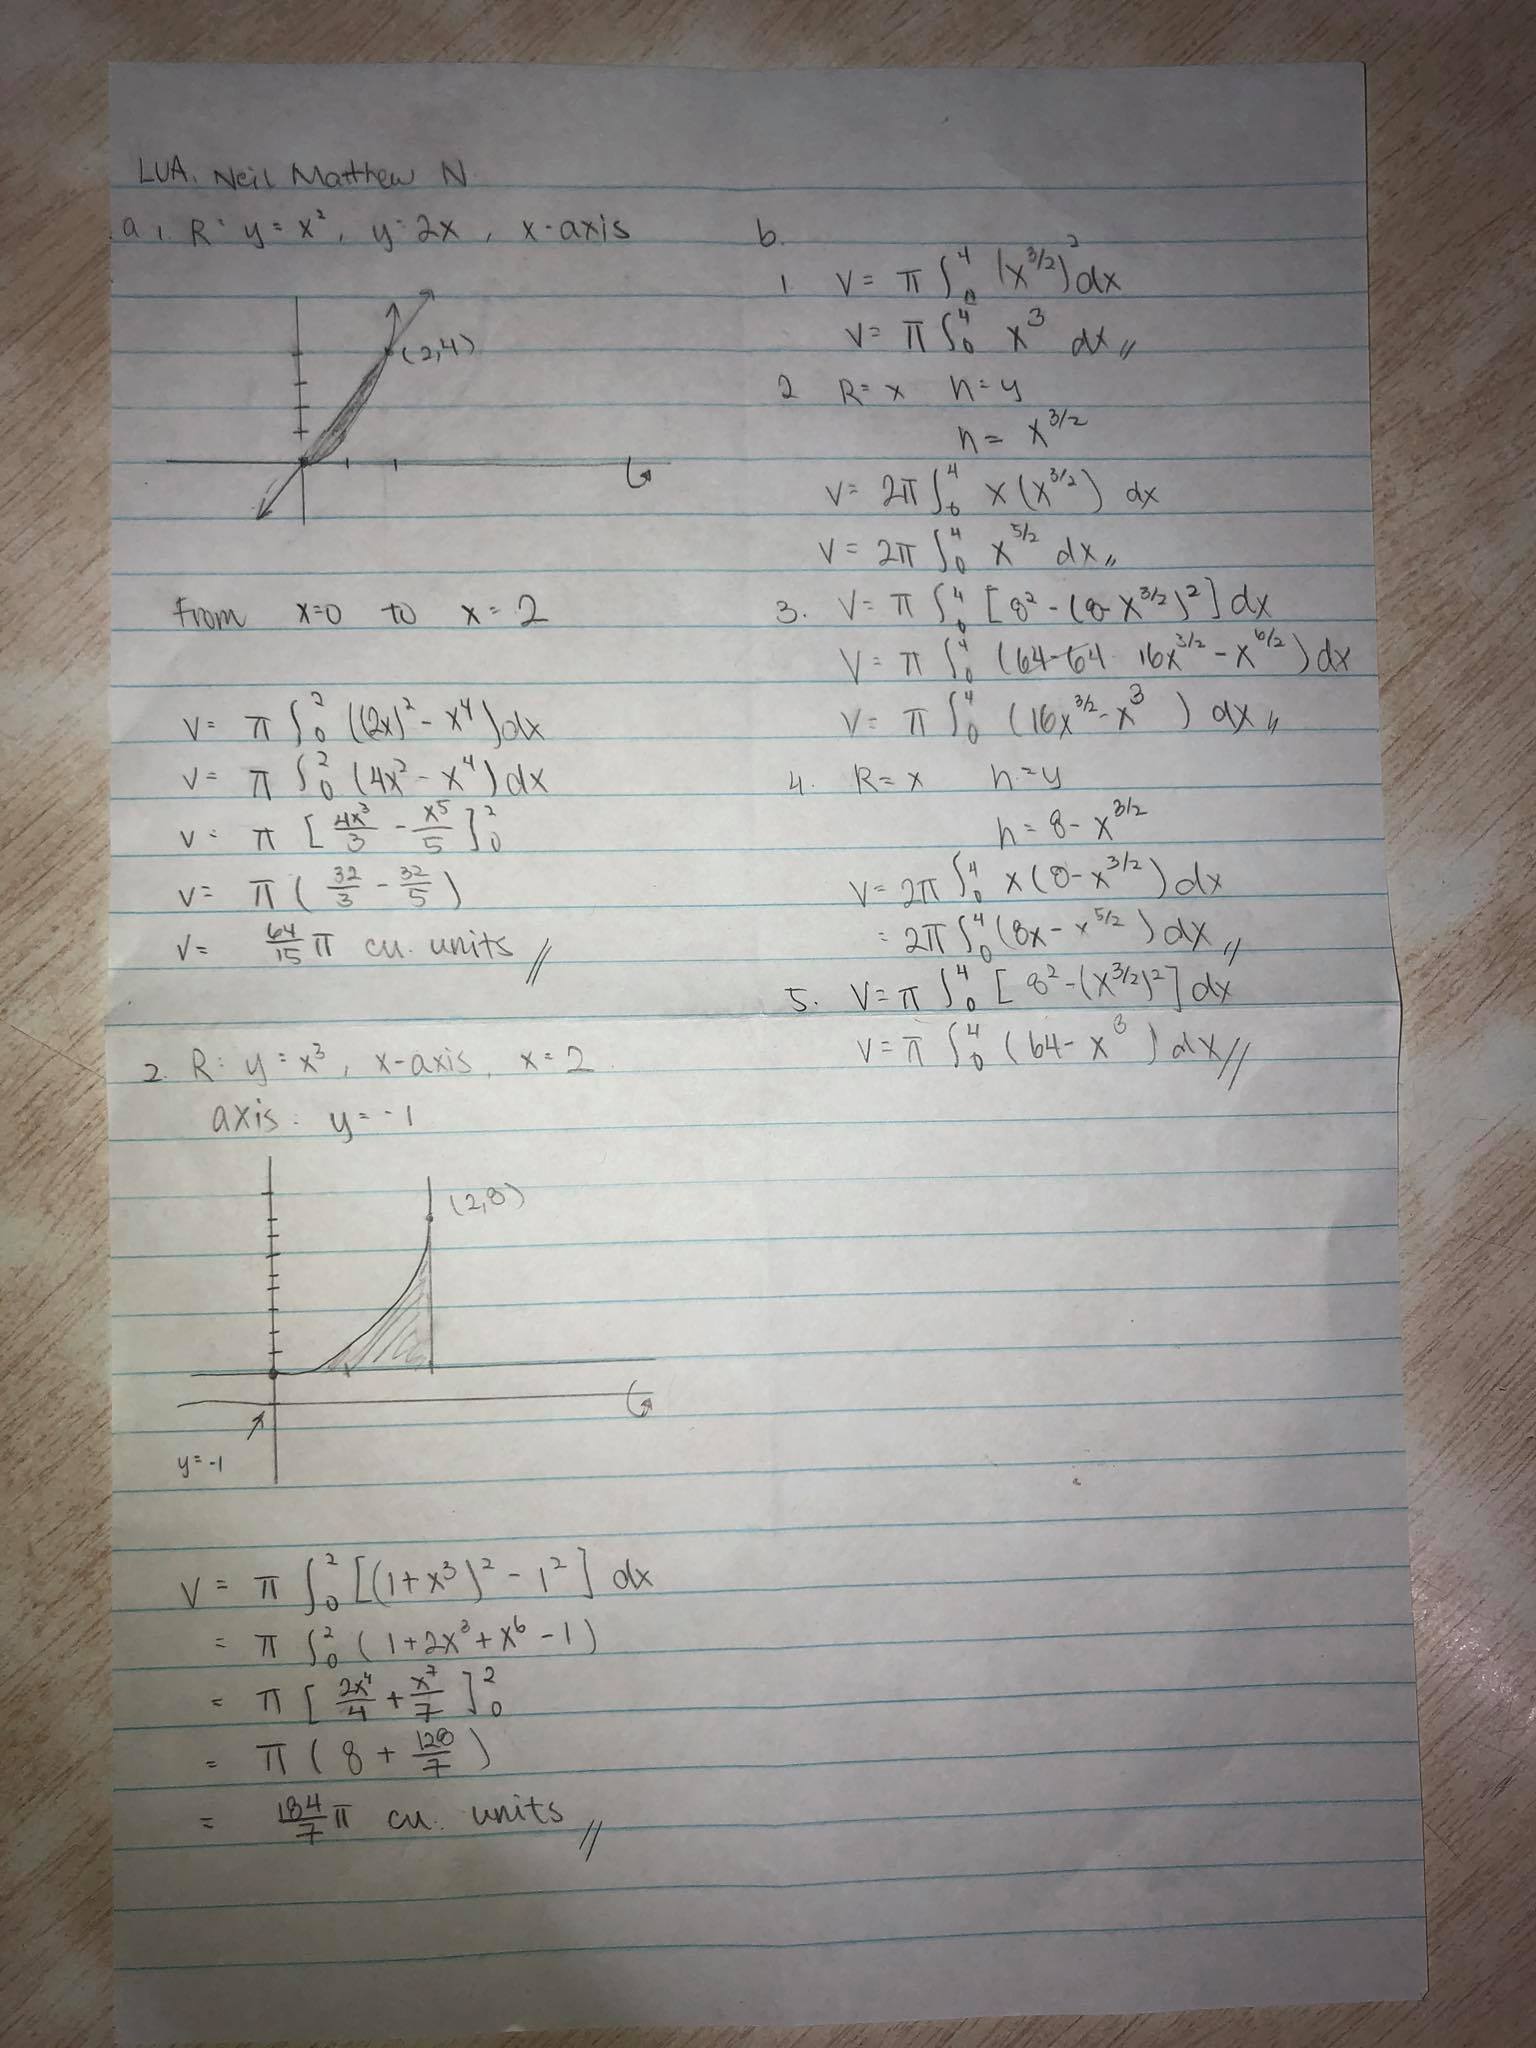 LUA, Neil Matthew N.
a 1. R: y = x², y = 2x, x-axis
(2,4)
From x=0 to x=2
V = π ∫₀² ((2x)² - x⁴) dx
V = π ∫₀² (4x² - x⁴) dx
V = π [4x³/3 - x⁵/5]₀²
V = π (32/3 - 32/5)
V = 64/15 π cu. units //
2. R: y = x³, x-axis, x = 2
axis: y = -1
(2,8)
y = -1
V = π ∫₀² [(1+x³)² - 1²] dx
= π ∫₀² (1+2x³+x⁶-1)
= π [2x⁴/4 + x⁷/7]₀²
= π (8 + 128/7)
= 184/7 π cu. units //
b.
1 V = π ∫₀⁴ (x^3/2)² dx
V = π ∫₀⁴ x³ dx //
2 R = x h = y
h = x^3/2
V = 2π ∫₀⁴ x(x^3/2) dx
V = 2π ∫₀⁴ x^5/2 dx //
3. V = π ∫₀⁴ [8² - (8-x^3/2)²] dx
V = π ∫₀⁴ (64-64 16x^3/2 - x^6/2) dx
V = π ∫₀⁴ (16x^3/2 - x³) dx //
4. R = x h = y
h = 8 - x^3/2
V = 2π ∫₀⁴ x(8-x^3/2) dx
= 2π ∫₀⁴ (8x - x^5/2) dx //
5. V = π ∫₀⁴ [8² - (x^3/2)²] dx
V = π ∫₀⁴ (64 - x³) dx //